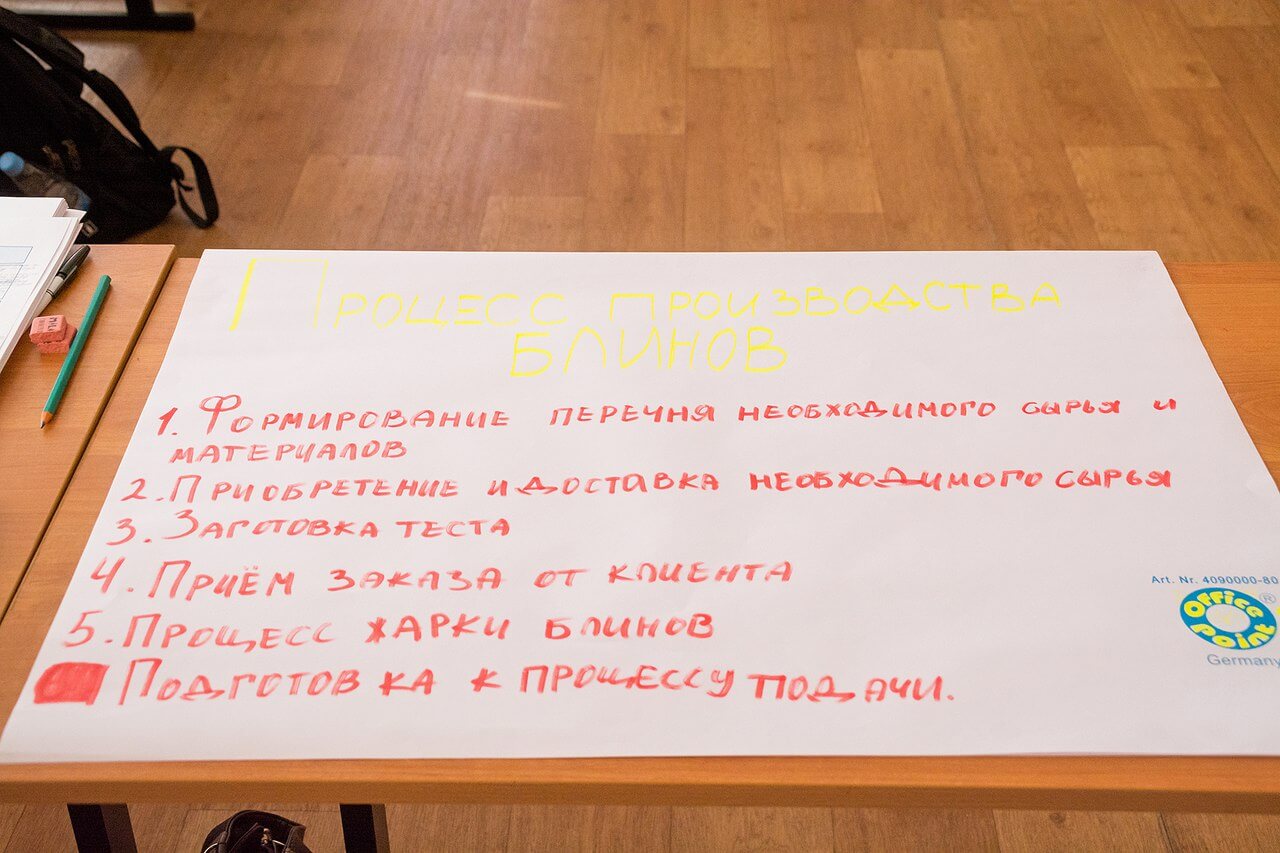 Процесс производства
блинов
1. Формирование перечня необходимого сырья и
материалов
2. Приобретение и доставка необходимого сырья
3. Заготовка теста
4. Приём заказа от клиента
5. Процесс жарки блинов
Подготовка к процессу подачи.
Art. Nr. 4090000-80
Office Point ®
Germany